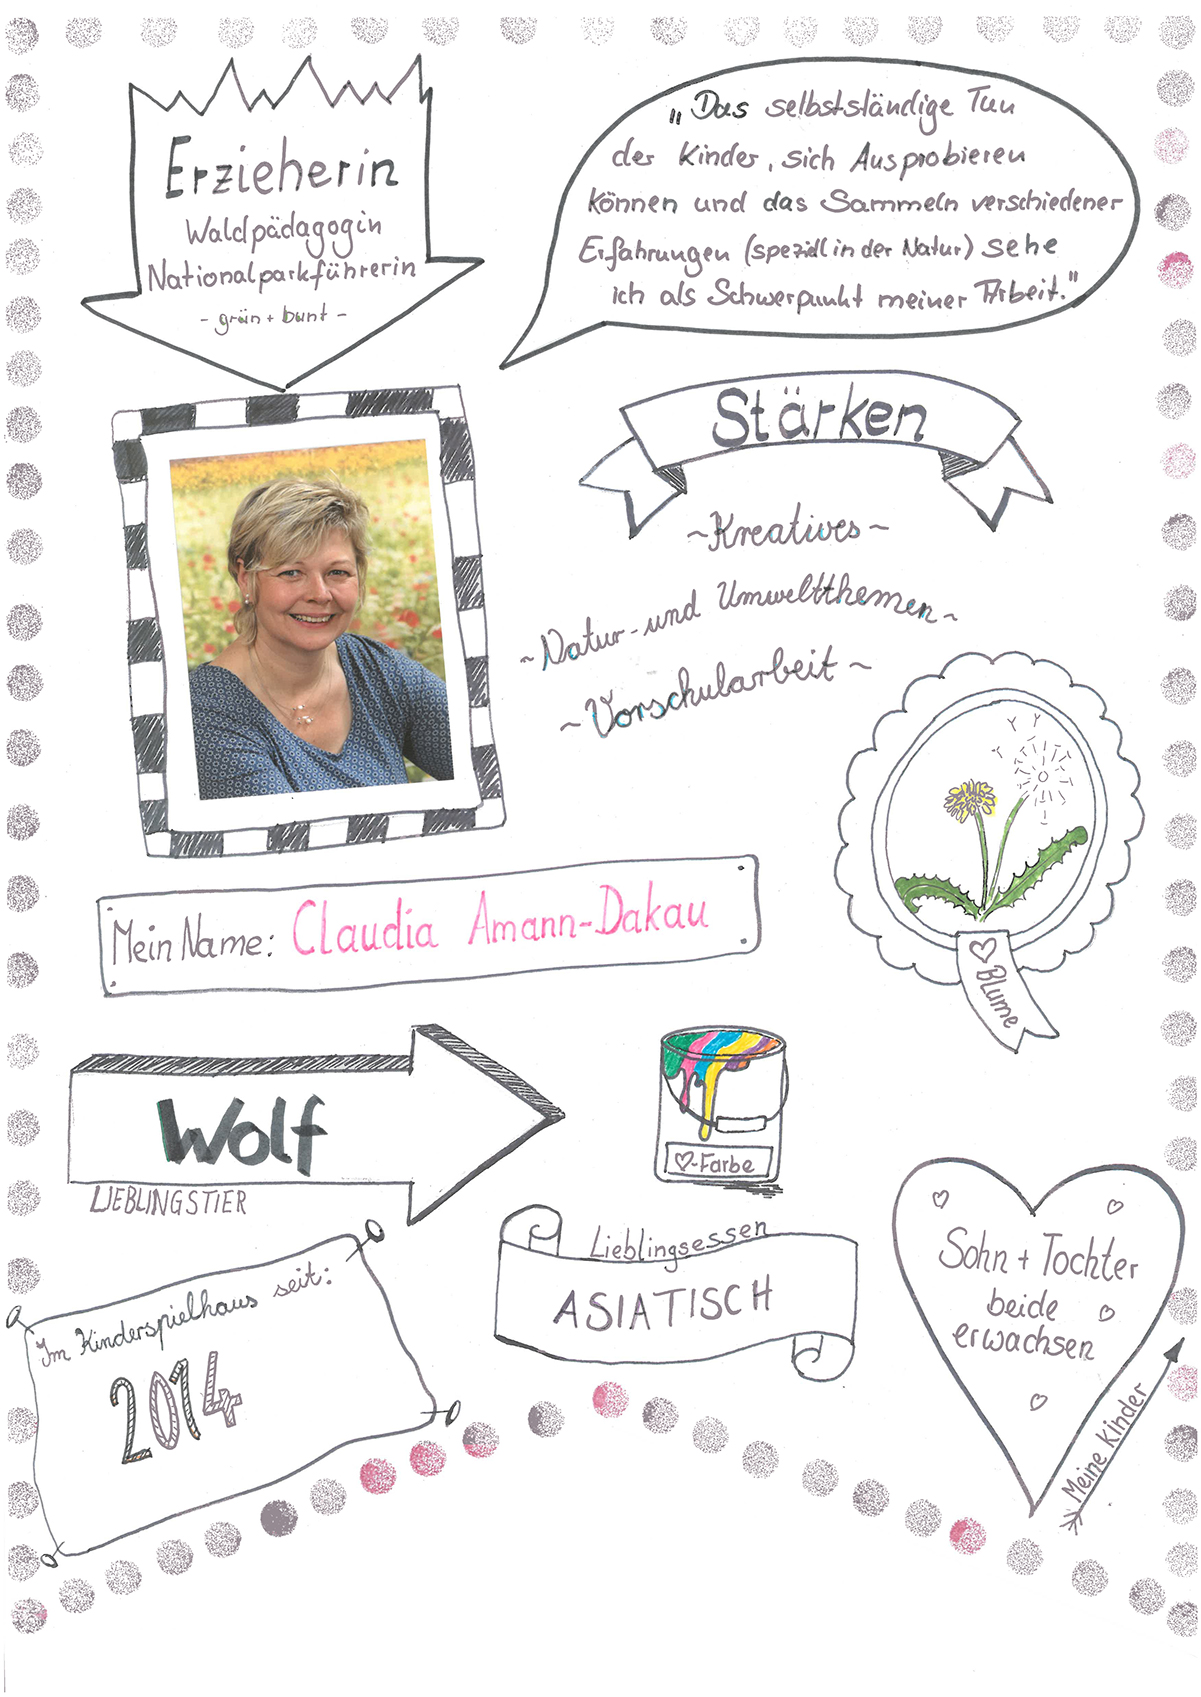 Erzieherin
Waldpädagogin
Nationalparkführerin
- grün + bunt -
„Das selbstständige Tun
der Kinder, sich Ausprobieren
können und das Sammeln verschiedener
Erfahrungen (speziell in der Natur) sehe
ich als Schwerpunkt meiner Arbeit."
Stärken
~Kreatives~
~Natur- und Umweltthemen~
~Vorschularbeit~
Mein Name: Claudia Amann-Dakau
♡ Blume
Wolf
LIEBLINGSTIER
♡-Farbe
Lieblingsessen
ASIATISCH
Sohn + Tochter
beide
erwachsen
Meine Kinder
Im Kinderspielhaus seit:
2014